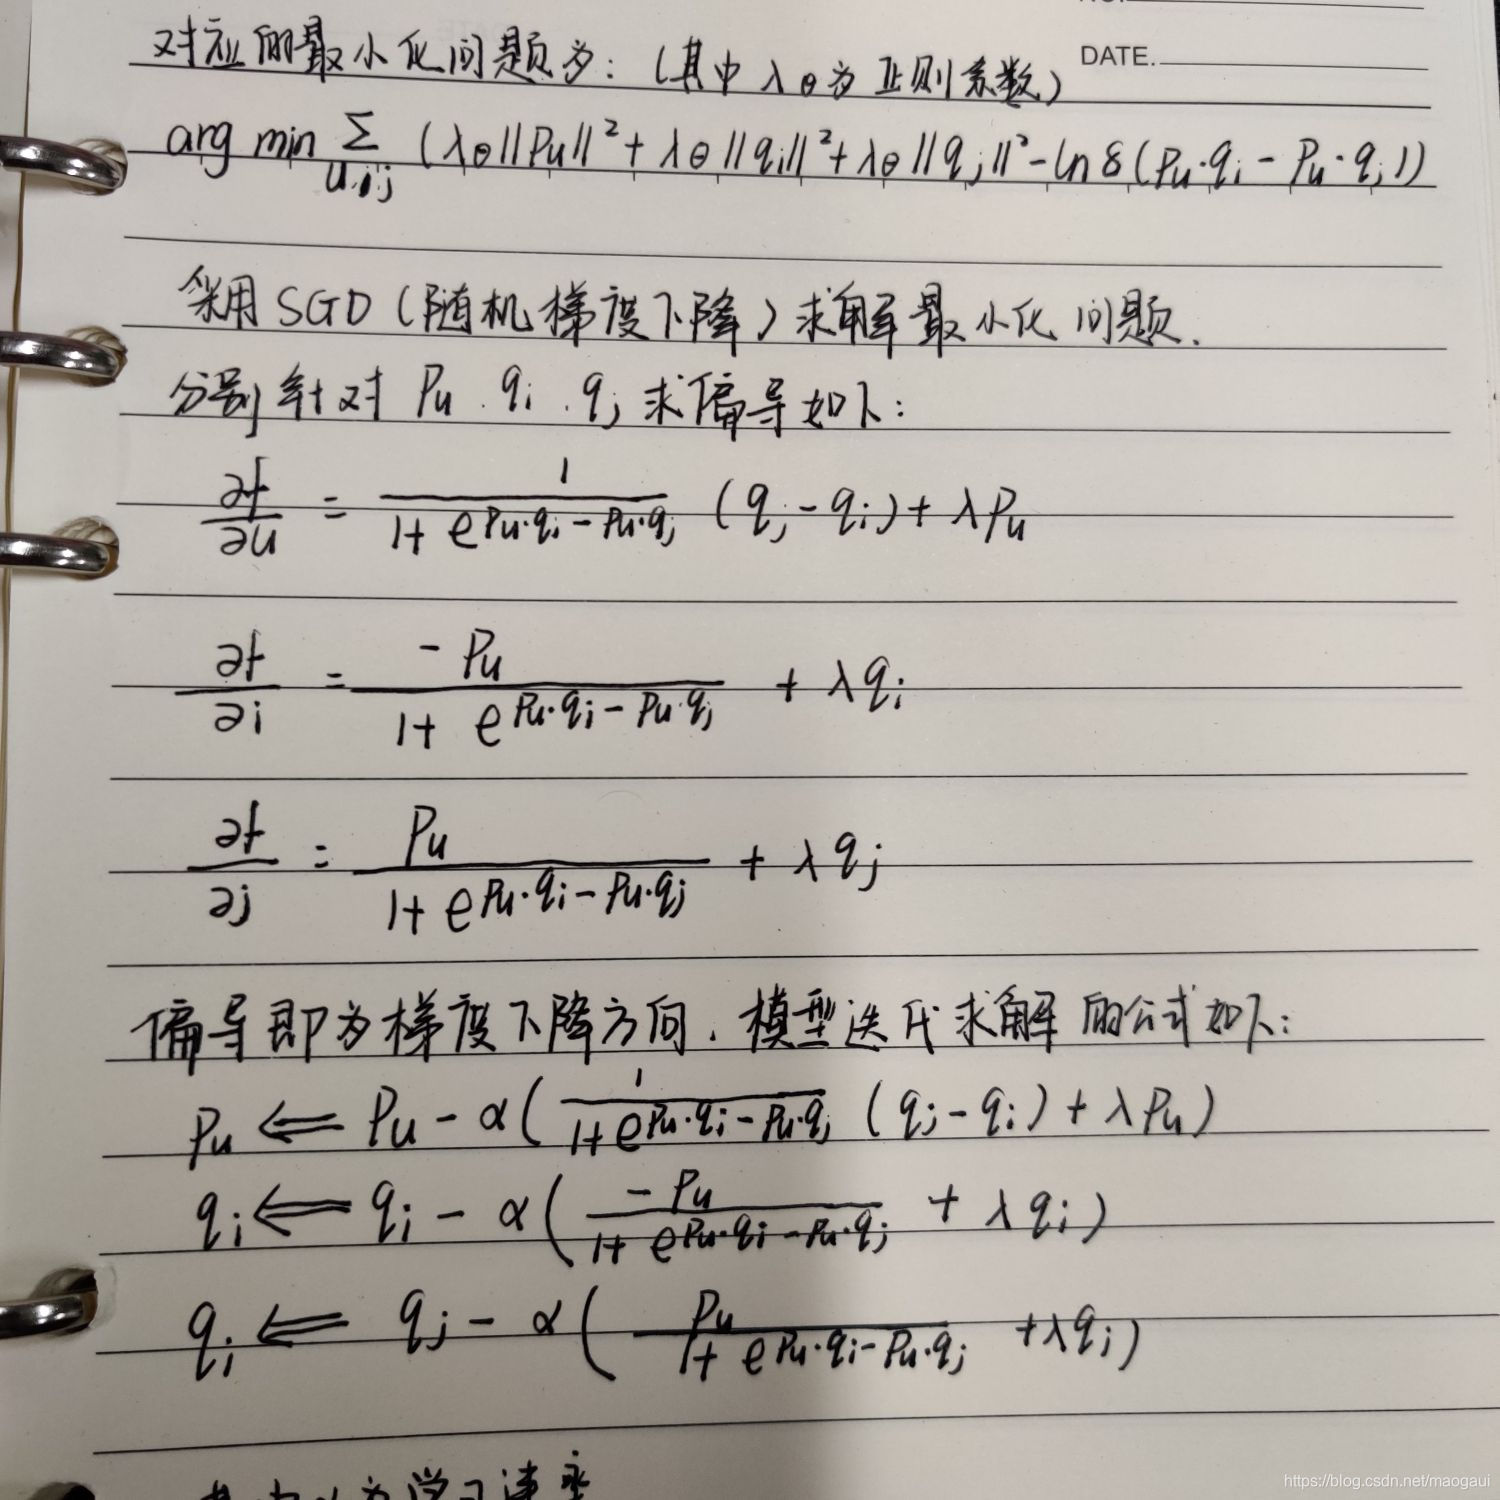 NO.
DATE.
对应的最小化问题为:(其中 λθ为正则系数)
arg min Σ u.i.j (λθ||Pu||² + λθ||qi||² + λθ||qj||² - ln δ(Pu·qi - Pu·qj))
采用SGD(随机梯度下降)求解最小化问题.
分别针对 Pu . qi . qj 求偏导如下:
∂f/∂u = 1/(1+ e^(Pu·qi - Pu·qj)) (qj - qi) + λPu
∂f/∂i = -Pu/(1+ e^(Pu·qi - Pu·qj)) + λqi
∂f/∂j = Pu/(1+ e^(Pu·qi - Pu·qj)) + λqj
偏导即为梯度下降方向. 模型迭代求解的公式如下:
Pu ⇐ Pu - α(1/(1+e^(Pu·qi - Pu·qj)) (qj - qi) + λPu)
qi ⇐ qi - α(-Pu/(1+ e^(Pu·qi - Pu·qj)) + λqi)
qi ⇐ qj - α(Pu/(1+ e^(Pu·qi - Pu·qj)) + λqi)
https://blog.csdn.net/maogaui